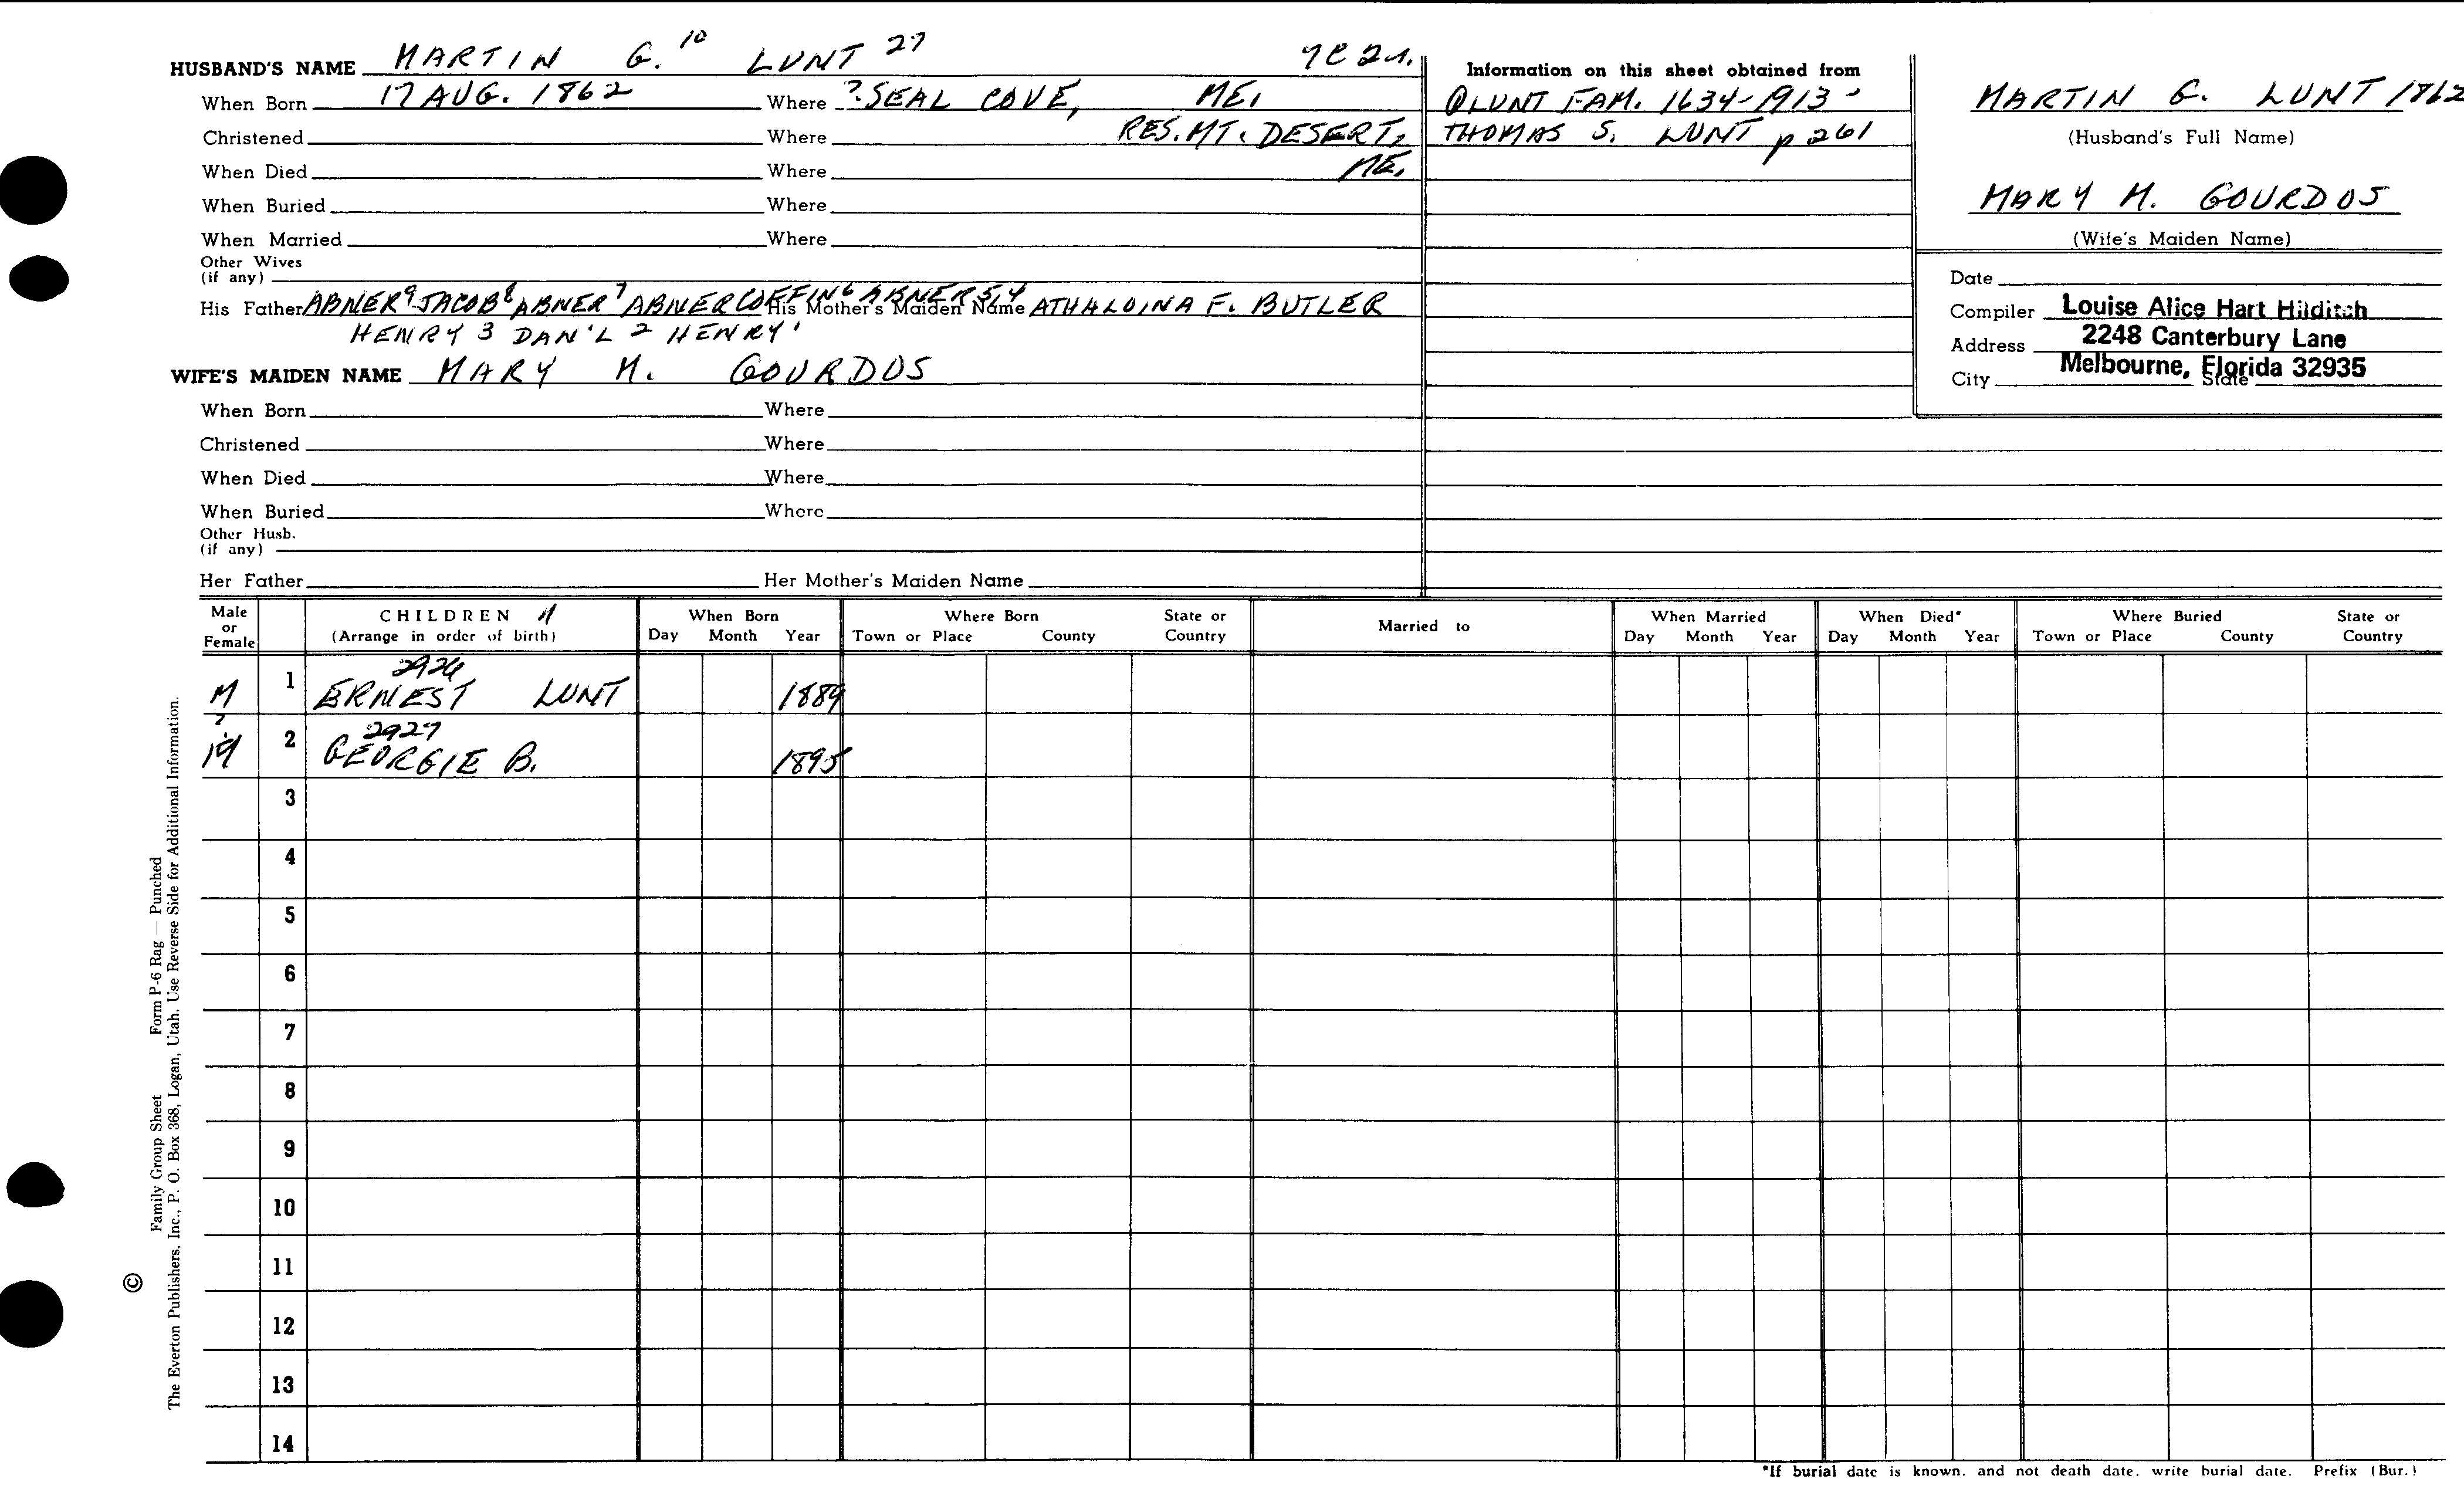 HUSBAND'S NAME MARTIN G.¹⁰ LUNT 27
When Born 17 AUG. 1862 Where ?SEAL COVE, ME,
Christened Where RES. MT. DESERT,
When Died Where ME.
When Buried Where
When Married Where
Other Wives
(if any)
His Father ABNER⁹ JACOB⁸ ABNER⁷ ABNER COFFIN⁶ ABNER⁵,⁴ His Mother's Maiden Name ATHALDINA F. BUTLER
HENRY 3 DAN'L 2 HENRY¹
WIFE'S MAIDEN NAME MARY M. GOURDOS
When Born Where
Christened Where
When Died Where
When Buried Where
Other Husb.
(if any)
Her Father Her Mother's Maiden Name
Information on this sheet obtained from
LUNT FAM. 1634-1913 -
THOMAS S. LUNT p 261
MARTIN G. LUNT 1862
(Husband's Full Name)
MARY M. GOURDOS
(Wife's Maiden Name)
Date
Compiler Louise Alice Hart Hilditch
Address 2248 Canterbury Lane
City Melbourne, Florida 32935
State
Male or Female CHILDREN 11 (Arrange in order of birth) When Born Day Month Year Where Born Town or Place County State or Country Married to When Married Day Month Year When Died* Day Month Year Where Buried Town or Place County State or Country
2926
M 1 ERNEST LUNT 1889
2927
? M 2 GEORGIE B. 1895
3
4
5
6
7
8
9
10
11
12
13
14
*If burial date is known, and not death date, write burial date. Prefix (Bur.)
Family Group Sheet Form P-6 Rag — Punched
© The Everton Publishers, Inc., P. O. Box 368, Logan, Utah. Use Reverse Side for Additional Information.